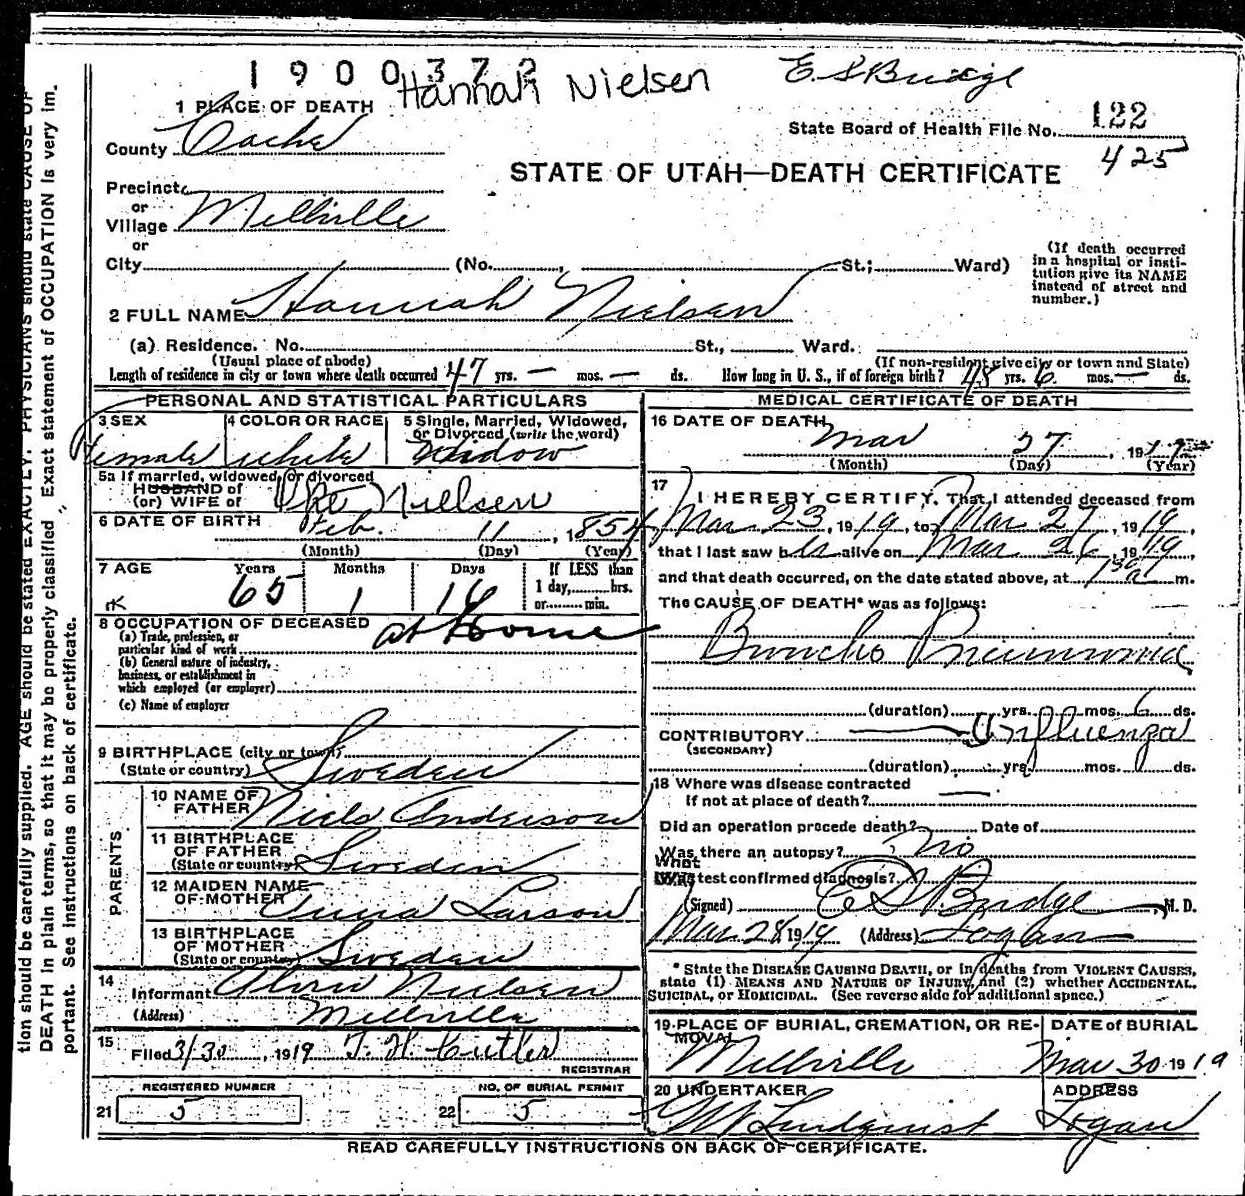 1900372
Hannah Nielsen
E S Budge
1 PLACE OF DEATH
County Cache
State Board of Health File No. 122
425
STATE OF UTAH—DEATH CERTIFICATE
Precinct
or
Village Millville
or
City (No. , St.; Ward)
(If death occurred
in a hospital or insti-
tution give its NAME
instead of street and
number.)
2 FULL NAME Hannah Nielsen
(a) Residence. No. St., Ward.
(Usual place of abode) (If non-resident give city or town and State)
Length of residence in city or town where death occurred 47 yrs. — mos. — ds. How long in U. S., if of foreign birth? 48 yrs. 6 mos. — ds.
PERSONAL AND STATISTICAL PARTICULARS
3 SEX 4 COLOR OR RACE 5 Single, Married, Widowed,
or Divorced (write the word)
Female White Widow
5a If married, widowed, or divorced
HUSBAND of
(or) WIFE of Nielsen
6 DATE OF BIRTH Feb. 11, 1854
(Month) (Day) (Year)
7 AGE Years Months Days If LESS than
1 day, hrs.
or min.
65 1 16
8 OCCUPATION OF DECEASED
(a) Trade, profession, or
particular kind of work at Home
(b) General nature of industry,
business, or establishment in
which employed (or employer)
(c) Name of employer
9 BIRTHPLACE (city or town)
(State or country) Sweden
PARENTS
10 NAME OF
FATHER Niels Anderson
11 BIRTHPLACE
OF FATHER
(State or country) Sweden
12 MAIDEN NAME
OF MOTHER Anna Larson
13 BIRTHPLACE
OF MOTHER
(State or country) Sweden
14
Informant Nielsen
(Address) Millville
15
Filed 3/30, 1919 J. H. Cutler
REGISTRAR
REGISTERED NUMBER NO. OF BURIAL PERMIT
21 5 22 5
MEDICAL CERTIFICATE OF DEATH
16 DATE OF DEATH
Mar 27, 1919
(Month) (Day) (Year)
17
I HEREBY CERTIFY, That I attended deceased from
Mar 23, 1919, to Mar 27, 1919,
that I last saw her alive on Mar 26, 1919,
and that death occurred, on the date stated above, at m.
The CAUSE OF DEATH* was as follows:
Broncho Pneumonia
(duration) yrs. mos. 6 ds.
CONTRIBUTORY Influenza
(SECONDARY)
(duration) yrs. mos. ds.
18 Where was disease contracted
if not at place of death?
Did an operation precede death? Date of
Was there an autopsy? No
What test confirmed diagnosis?
(Signed) E S Budge, M. D.
Mar 28, 1919 (Address) Logan
* State the DISEASE CAUSING DEATH, or in deaths from VIOLENT CAUSES,
state (1) MEANS AND NATURE OF INJURY, and (2) whether ACCIDENTAL,
SUICIDAL, or HOMICIDAL. (See reverse side for additional space.)
19 PLACE OF BURIAL, CREMATION, OR RE-
MOVAL DATE of BURIAL
Millville Mar 30 1919
20 UNDERTAKER ADDRESS
Lindquist Logan
READ CAREFULLY INSTRUCTIONS ON BACK OF CERTIFICATE.
tion should be carefully supplied. AGE should be stated EXACTLY. PHYSICIANS should state CAUSE OF
DEATH in plain terms, so that it may be properly classified. Exact statement of OCCUPATION is very im-
portant. See instructions on back of certificate.